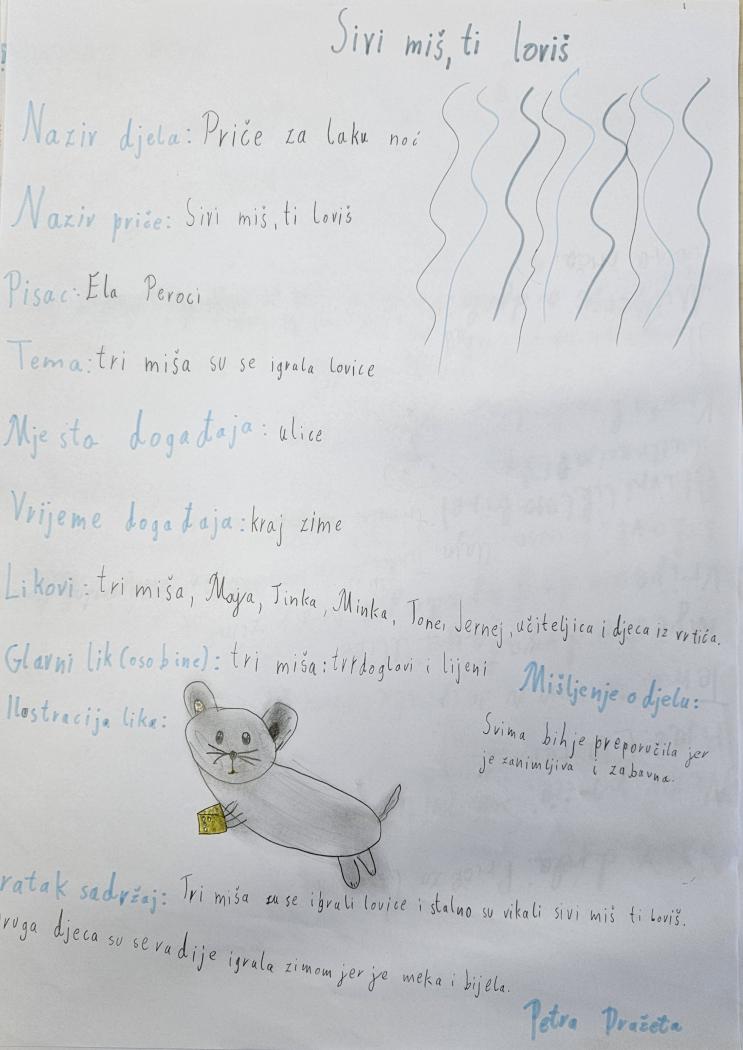 Sivi miš, ti loviš
Naziv djela: Priče za laku noć
Naziv priče: Sivi miš, ti loviš
Pisac: Ela Peroci
Tema: tri miša su se igrala lovice
Mjesto događaja: ulice
Vrijeme događaja: kraj zime
Likovi: tri miša, Maja, Tinka, Minka, Tone, Jernej, učiteljica i djeca iz vrtića.
Glavni lik (osobine): tri miša: tvrdoglavi i lijeni
Mišljenje o djelu:
Svima bih je preporučila jer
je zanimljiva i zabavna.
Ilostracija lika:
ratak sadržaj: Tri miša su se igrali lovice i stalno su vikali sivi miš ti loviš.
ruga djeca su se radije igrala zimom jer je meka i bijela.
Petra Dražeta